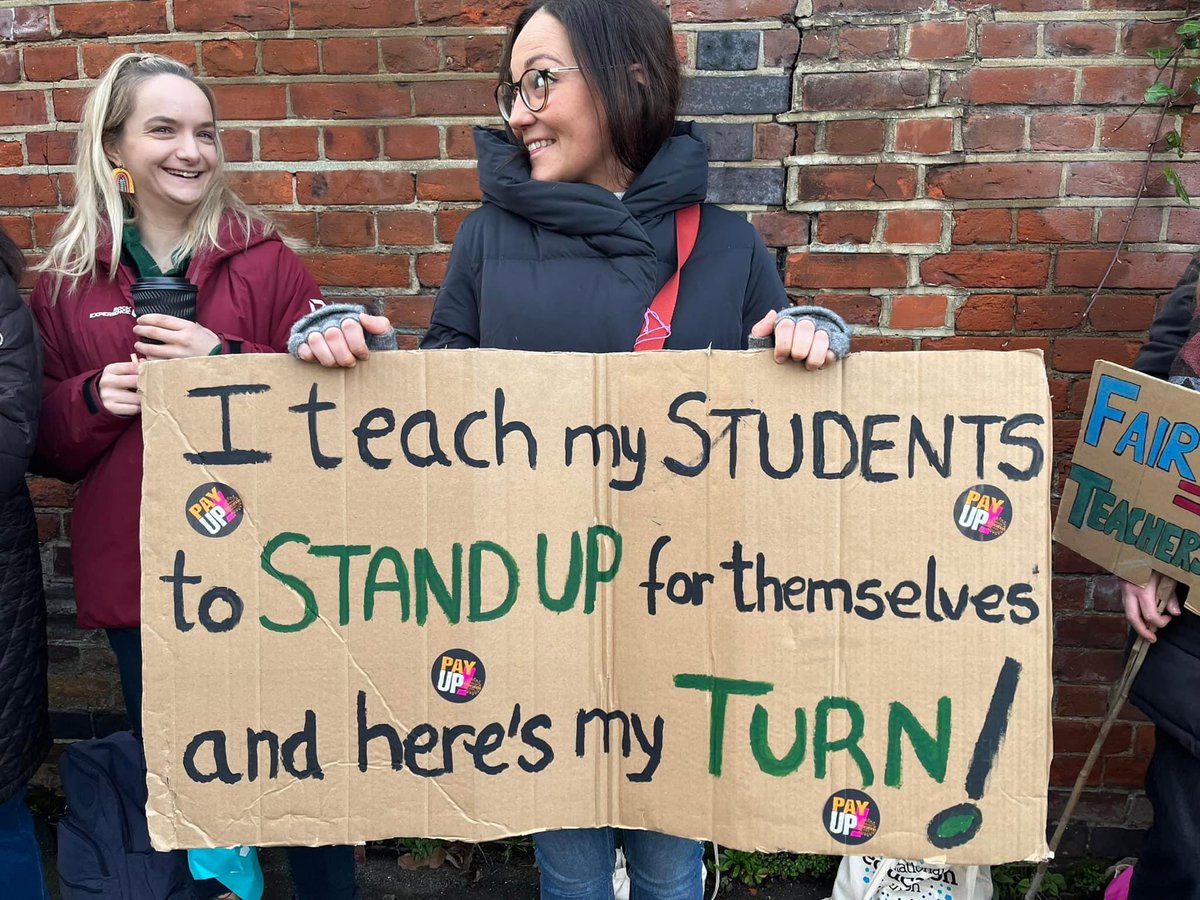 I teach my STUDENTS
to STAND UP for themselves
and here's my TURN!
PAY
UP!
PAY
UP!
PAY
UP!
PAY
UP!
FAIR
=
TEACHERS